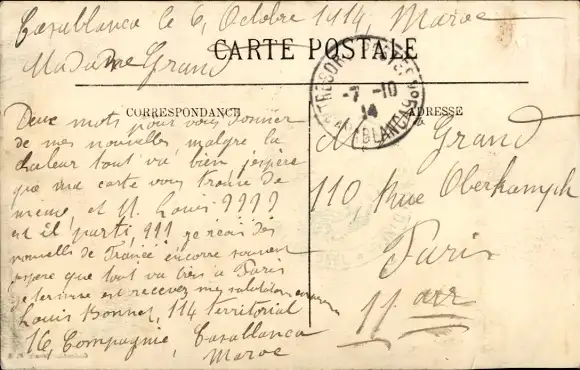 Casablanca le 6, Octobre 1914, Maroc
CARTE POSTALE
Madame Grand
TRESOR ET POSTES
-7 -10
14
CASABLANCA
CORRESPONDANCE
ADRESSE
Deux mots pour vous donner
de mes nouvelles, malgre la
chaleur tout va bien j'espère
que ma carte vous trouve de
même, et M. Louis ????
est il parti, ??? je reçois des
nouvelles de France encorre souvent
espere que tout va bien a Paris
je termine et recevez mes salutations
Louis Bonnet, 114 territorial
16 Compagnie, Casablanca
Maroc
M. Grand
110, Rue Oberkampf
Paris
11 arr